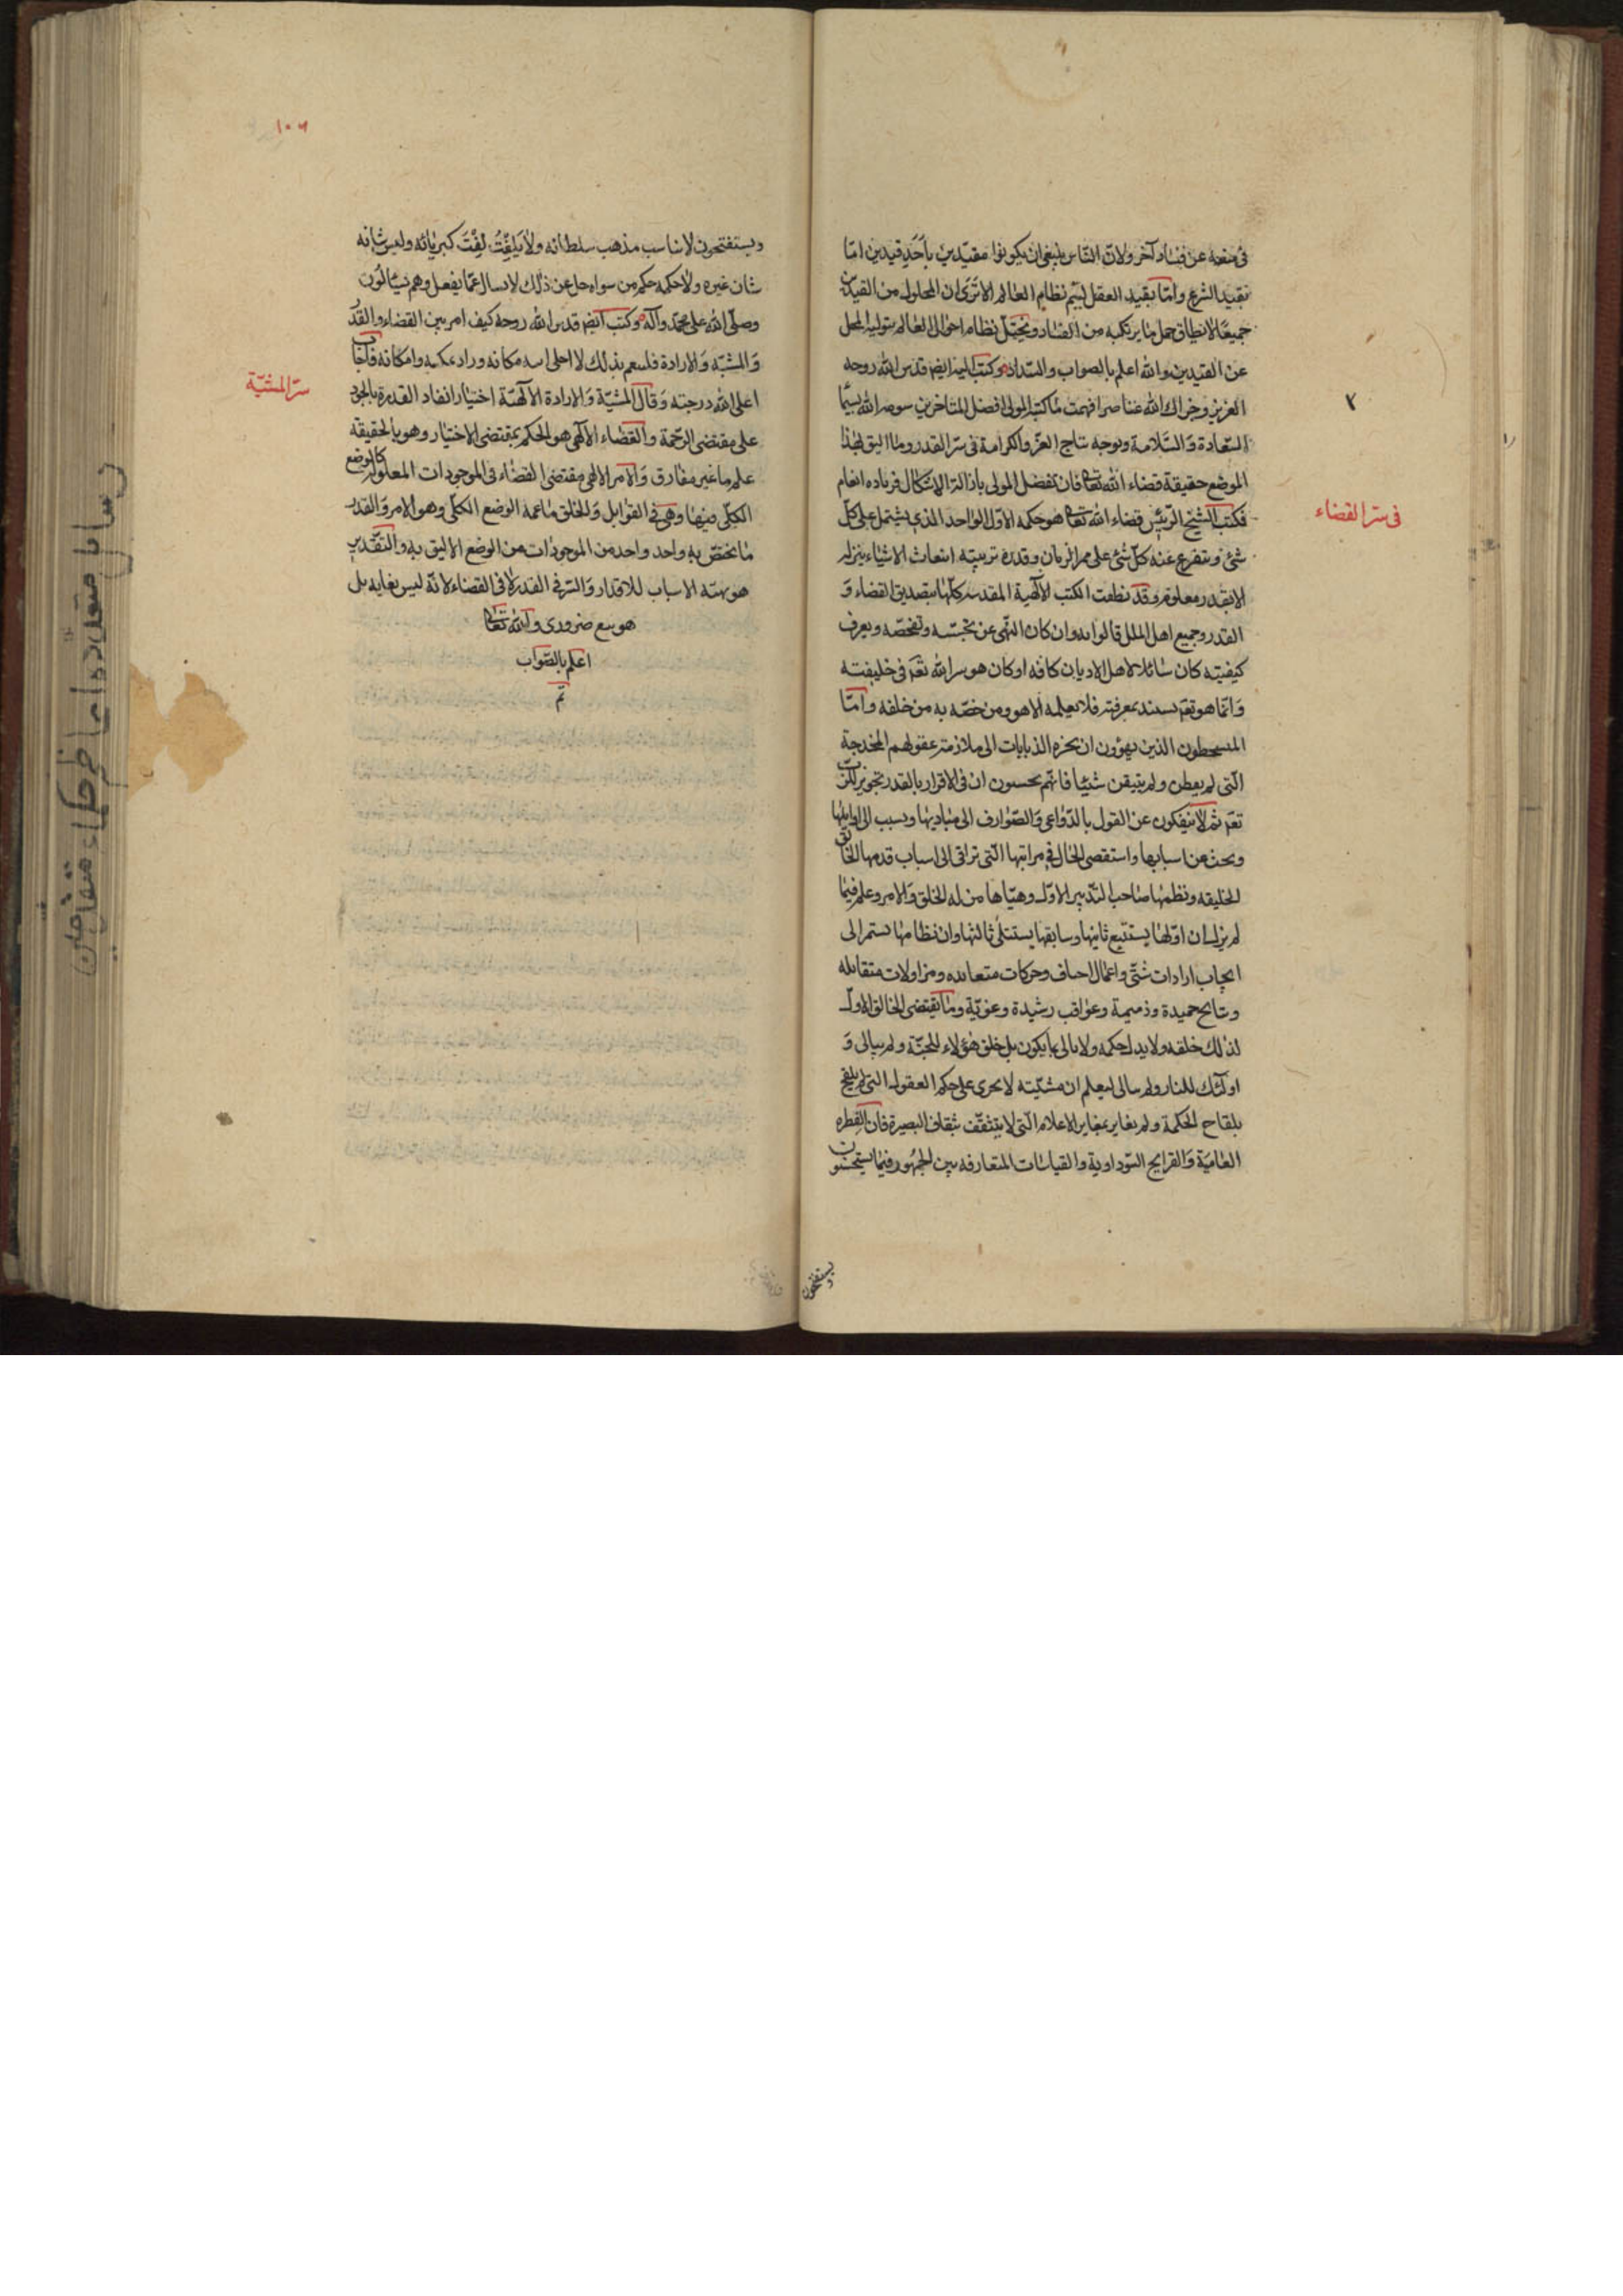 في منعه عن فساد آخر ولان الناس ينبغي ان يكونوا مقيدين باحد قيدين اما
بقيد الشرع واما بقيد العقل ليتم نظام العالم الا ترى ان المحلول من القيدين
جميعا لا يطاق حمل ما يرتكبه من الفساد ويختل نظام احوال العالم بتولية المحل
عن القيدين والله اعلم بالصواب والسداد وكتب اليه ايضا قدس الله روحه
العزيز وجزاك الله عنا فهمت ما كتبه المولى افضل المتاخرين الله
السعادة والسلامة وتوجه بتاج العز والكرامة في سر القدر وما اليق لهذا
الموضع حقيقة قضاء الله تعالى فان تفضل المولى بازالة الاشكال فزياده انعام
في سر القضاء
فكتب الشيخ الرئيس قضاء الله تعالى هو حكمه الاول الواحد الذي يشتمل على كل
شئ ويتفرع عنه كل شئ على ممر الزمان وقدره ترتيبه انبعاث الاشياء ينزله
الا بقدر معلوم وقد نطقت الكتب الآلهية المقدسه كلها بتصديق القضاء و
القدر وجميع اهل الملل قالوا به وان كان النهى عن تجسسه وتفحصه ويعرف
كيفيته كان شائلا لاهل الاديان كافه او كان هو سر الله تعم في خليفته
وانما هو تعم بمعرفته فلا يعلمه الا هو ومن خصه به من خلفه واما
الذين ان الى ملازمة عقولهم المخدجة
التى لم يفطن ولم يتيقن شيئا فانهم يحسبون ان في الاقرار بالقدر تجوير
تعم ثم لا ينفكون عن القول بالدواعى والصوارف الى مباديها ونسب الى اوايلها
وبحث عن اسبابها واستقصى الحال في مراتبها التى تراقى الى اسباب قدمها الخالق
الخليقه ونظمها صاحب التدبير الاول وهياها من له الخلق والامر وعلم فيما
لم يزل ان اولها يستتبع ثانيها وسابقها يستتلى ثالثها وان نظامها يستمر الى
ايجاب ارادات شتى واعمال وحركات ومزاولات متقابله
ونتايج حميدة وذميمة وعواقب رشيدة وغوية وما يقتضى الخالق الاول
لذلك خلقه ولا يبدل حكمه ولا يبالى بما يكون بل خلق هؤلاء للجنة ولم يبالى و
اولئك للنار ولم يبالى ليعلم ان مشيته لا يجرى على حكم العقول التى لم يلقح
بلقاح الحكمة ولم يعاير بمعاير الاعلام التى لا يتثقف بثقاف البصيرة فان الفطره
العامية والقرايح السوداوية والقياسات المتعارفه بين الجمهور فيما يستحسنون
يستقبحون
١٠٦
ويستقبحون لا يناسب مذهب سلطانه ولا يلفت لفت كبريائه وليس شانه
شان غيره ولا حكمه حكم من سواه جل عن ذلك لا يسال عما يفعل وهم يسالون
وصلى الله على محمد وآله وكتب ايضا قدس الله روحه كيف امر بين القضاء والقدر
والمشيه والارادة فلينعم بذلك لا اخلى الله مكانه وزاد تمكنه وامكانه فاجاب
سر المشية
اعلى الله درجته وقال المشية والارادة الآلهية اختيار انفاد القدرة بالجود
على مقتضى الرحمة والقضاء الآلهى هو الحكم بمقتضى الاختيار وهو بالحقيقة
علم ما غير مفارق والامر الالهى مقتضى القضاء في الموجودات المعلولة كالوضع
الكلى فيها وهى في القوابل والخلق ما عمه الوضع الكلى وهو الامر والقدر
ما يخص به واحد واحد من الموجودات من الوضع الاليق به والتقدير
هو تهيئة الاسباب للاقدار والسر في القدر لا في القضاء لانه ليس بغايه بل
هو ضرورى والله تعالى
اعلم بالصواب
تم
رسايل متعدده اعاظم حكماء متقدمين